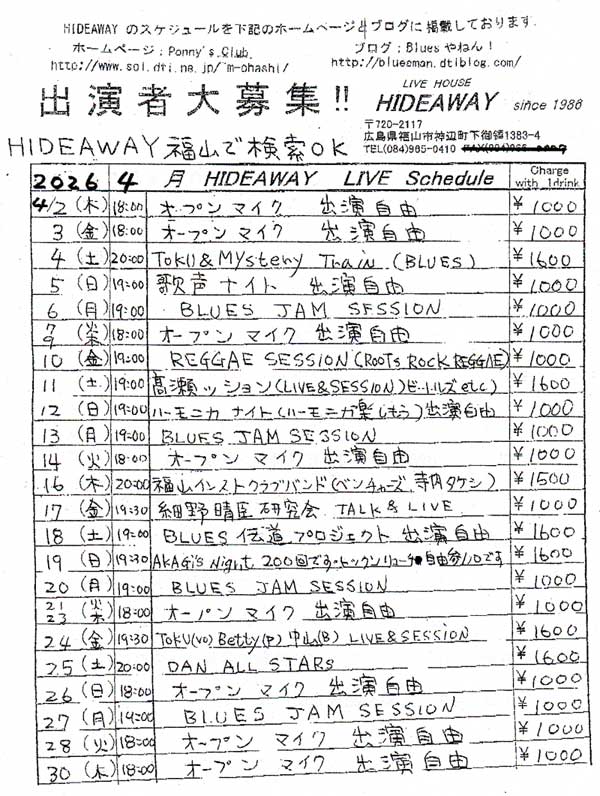 HIDEAWAY のスケジュールを下記のホームページとブログに掲載しております.
ホームページ：Ponny's Club ブログ：Bluesやねん！
http://www.sol.dti.ne.jp/~m-ohashi/ http://bluesman.dtiblog.com/
出演者大募集!! LIVE HOUSE HIDEAWAY since 1986
〒720-2117
広島県福山市神辺町下御領1383-4
TEL(084)965-0410
HIDEAWAY 福山で検索OK
2026 4 月 HIDEAWAY LIVE Schedule Charge with 1drink
4/2 (木) 18:00 オープン マイク 出演自由 ¥1000
3 (金) 18:00 オープン マイク 出演自由 ¥1000
4 (土) 20:00 TOKU&Mystery Train (BLUES) ¥1600
5 (日) 19:00 歌声ナイト 出演自由 ¥1000
6 (月) 19:00 BLUES JAM SESSION ¥1000
7 9 (火木) 18:00 オープン マイク 出演自由 ¥1000
10 (金) 19:00 REGGAE SESSION (ROOTS ROCK REGGAE) ¥1000
11 (土) 19:00 高瀬ッション(LIVE&SESSION)ビートルズetc) ¥1600
12 (日) 19:00 ハーモニカ ナイト(ハーモニカ楽しもう)出演自由 ¥1000
13 (月) 19:00 BLUES JAM SESSION ¥1000
14 (火) 18:00 オープン マイク 出演自由 ¥1000
16 (木) 20:00 福山インストクラブバンド(ベンチャーズ 寺内タケシ) ¥1500
17 (金) 19:30 細野晴臣研究会 TALK & LIVE ¥1000
18 (土) 19:00 BLUES 伝道プロジェクト 出演自由 ¥1600
19 (日) 19:30 AKAGI's Night 200回です・自由参加です ¥1600
20 (月) 19:00 BLUES JAM SESSION ¥1000
21 23 (火木) 18:00 オープン マイク 出演自由 ¥1000
24 (金) 19:30 TOKU(vo) Betty(P) 中山(B) LIVE&SESSION ¥1600
25 (土) 20:00 DAN ALL STARS ¥1600
26 (日) 18:00 オープン マイク 出演自由 ¥1000
27 (月) 19:00 BLUES JAM SESSION ¥1000
28 (火) 18:00 オープン マイク 出演自由 ¥1000
30 (木) 18:00 オープン マイク 出演自由 ¥1000